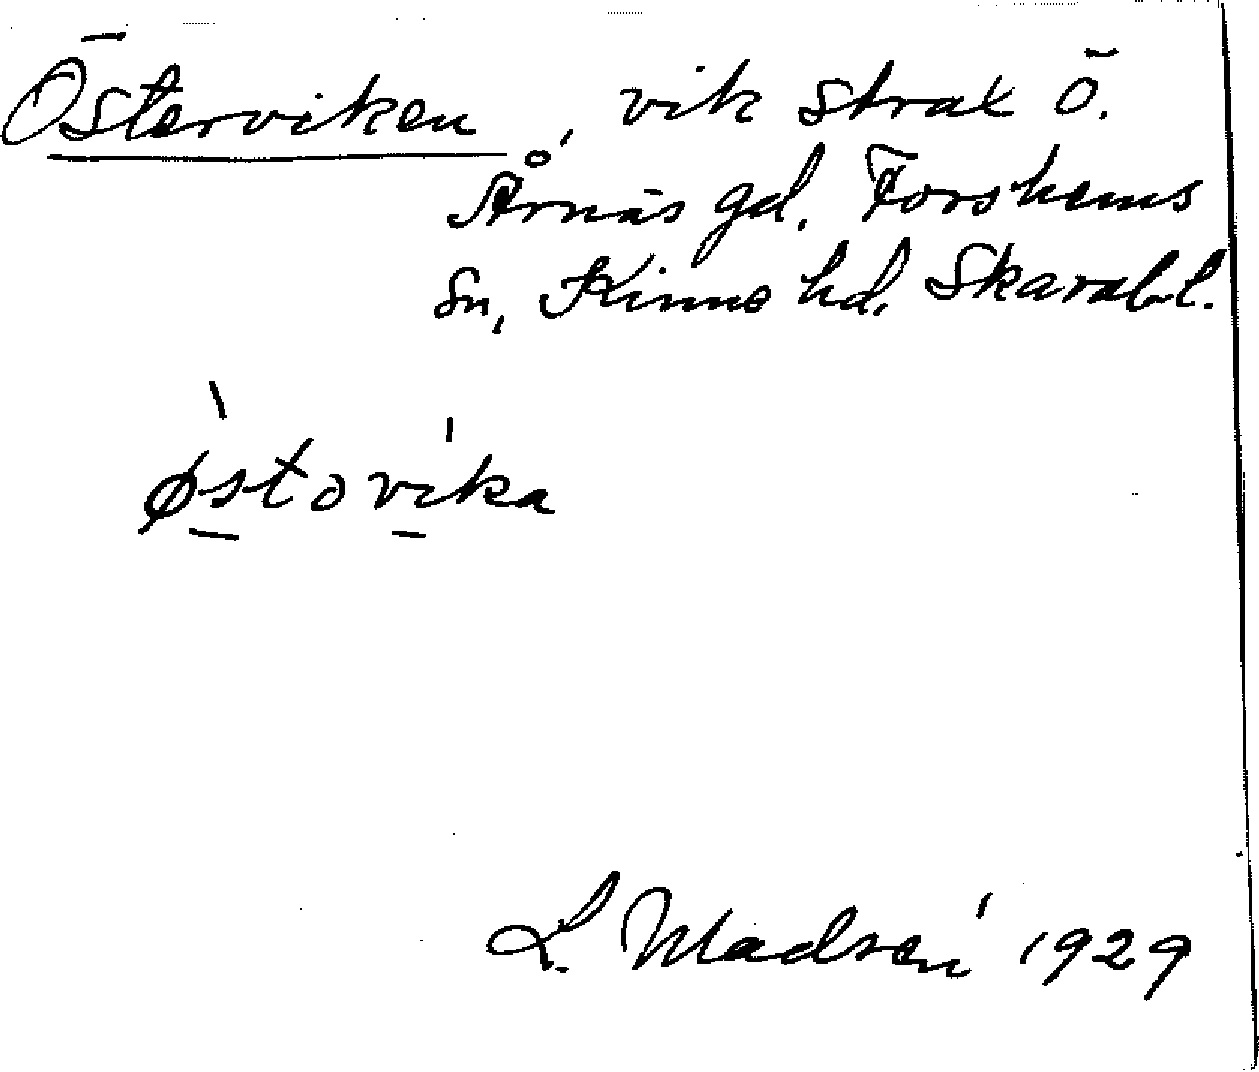 Österviken, vik strax Ö.
Årnäs gd. Forshems
Sn, Kinne hd. Skarabl.
østovika
L. Madsén 1929